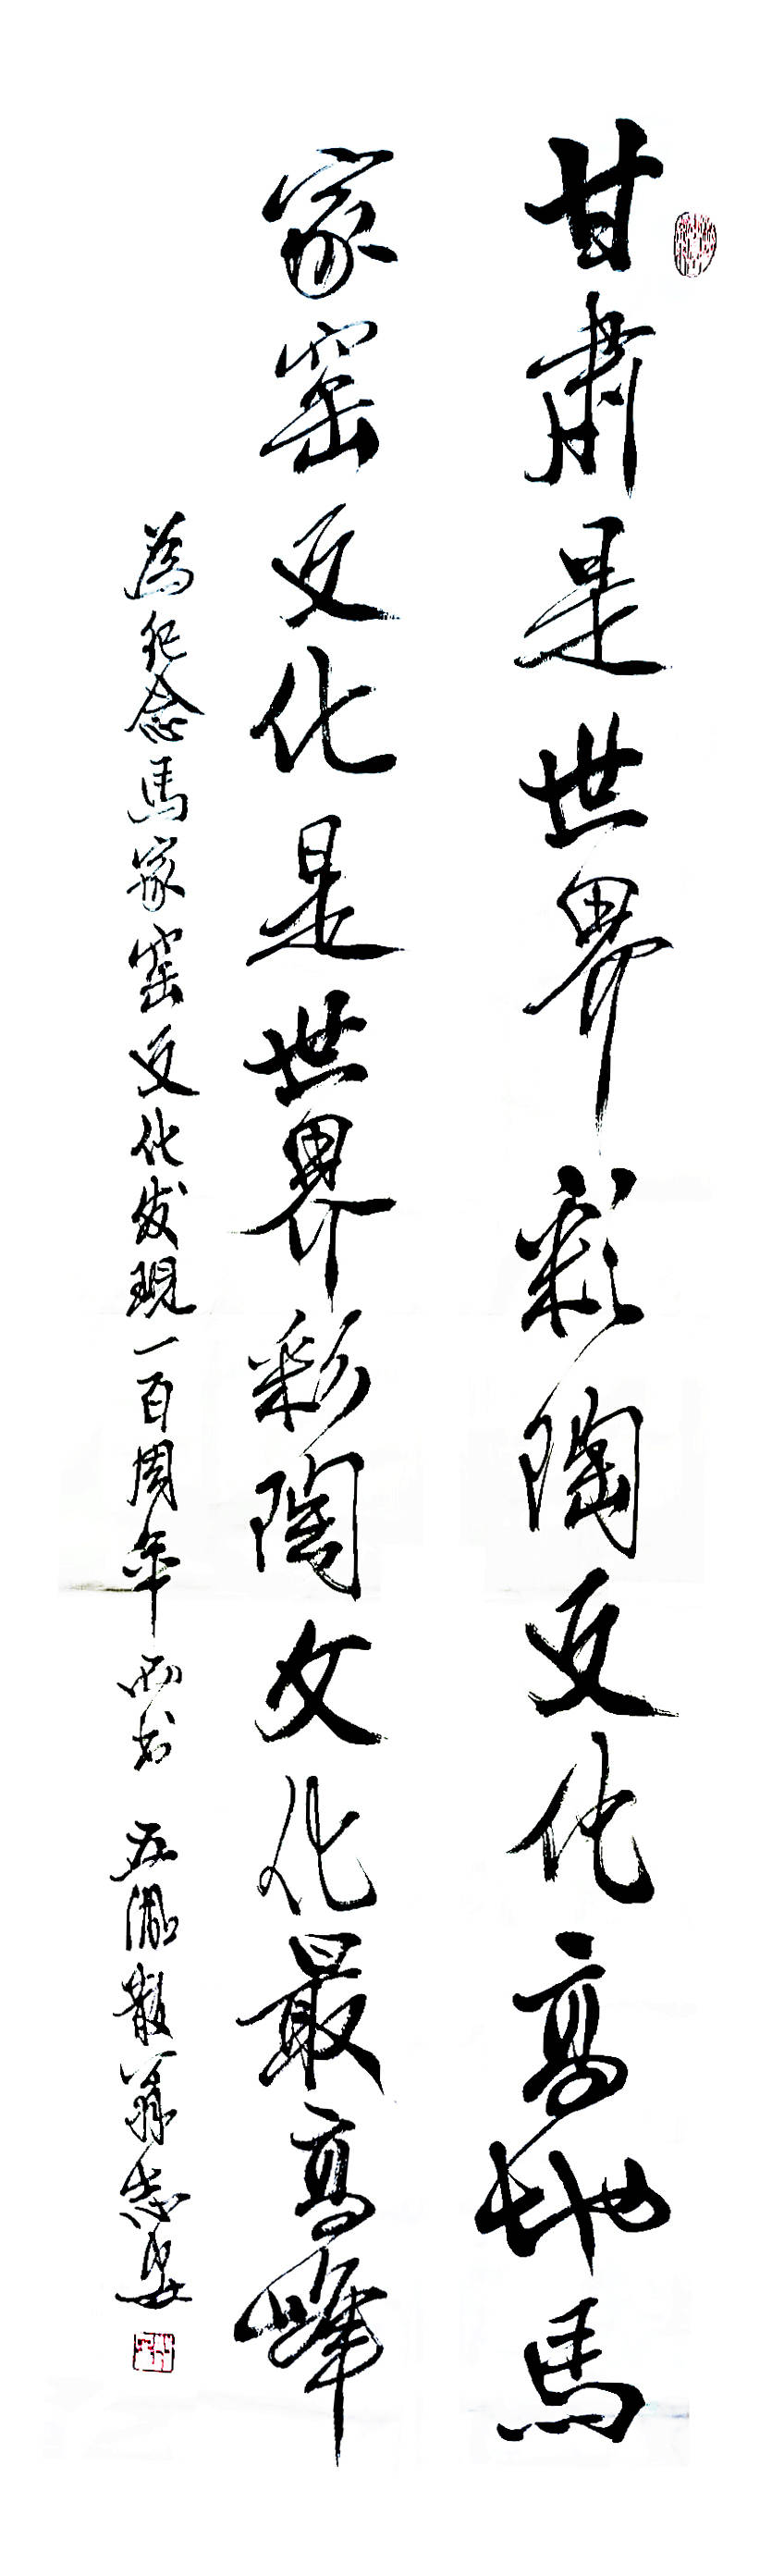 甘肃是世界彩陶文化高地馬
家窑文化是世界彩陶文化最高峰
為纪念馬家窑文化发現一百周年 而书 五 散翁志